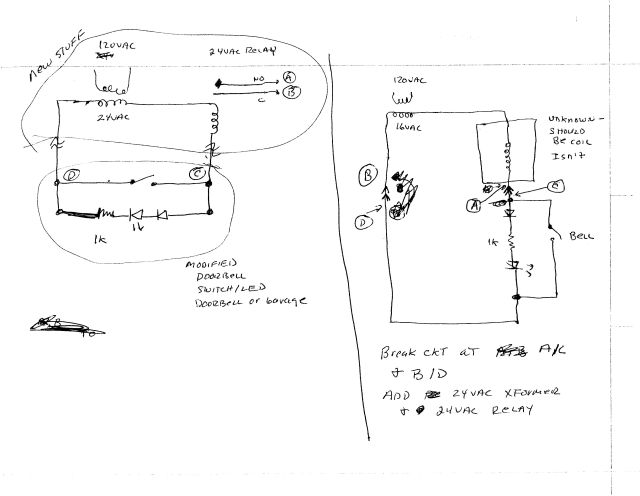 NEW STUFF
120VAC
24VAC RELAY
NO A
C B
24VAC
D
C
1k
MODIFIED
DOORBELL
SWITCH/LED
DOORBELL or Garage
120VAC
16VAC
UNKNOWN -
SHOULD
BE COIL
ISN'T
B
D
A
C
1k
Bell
Break CKT AT A/C
+ B/D
ADD 24VAC XFORMER
+ 24VAC RELAY